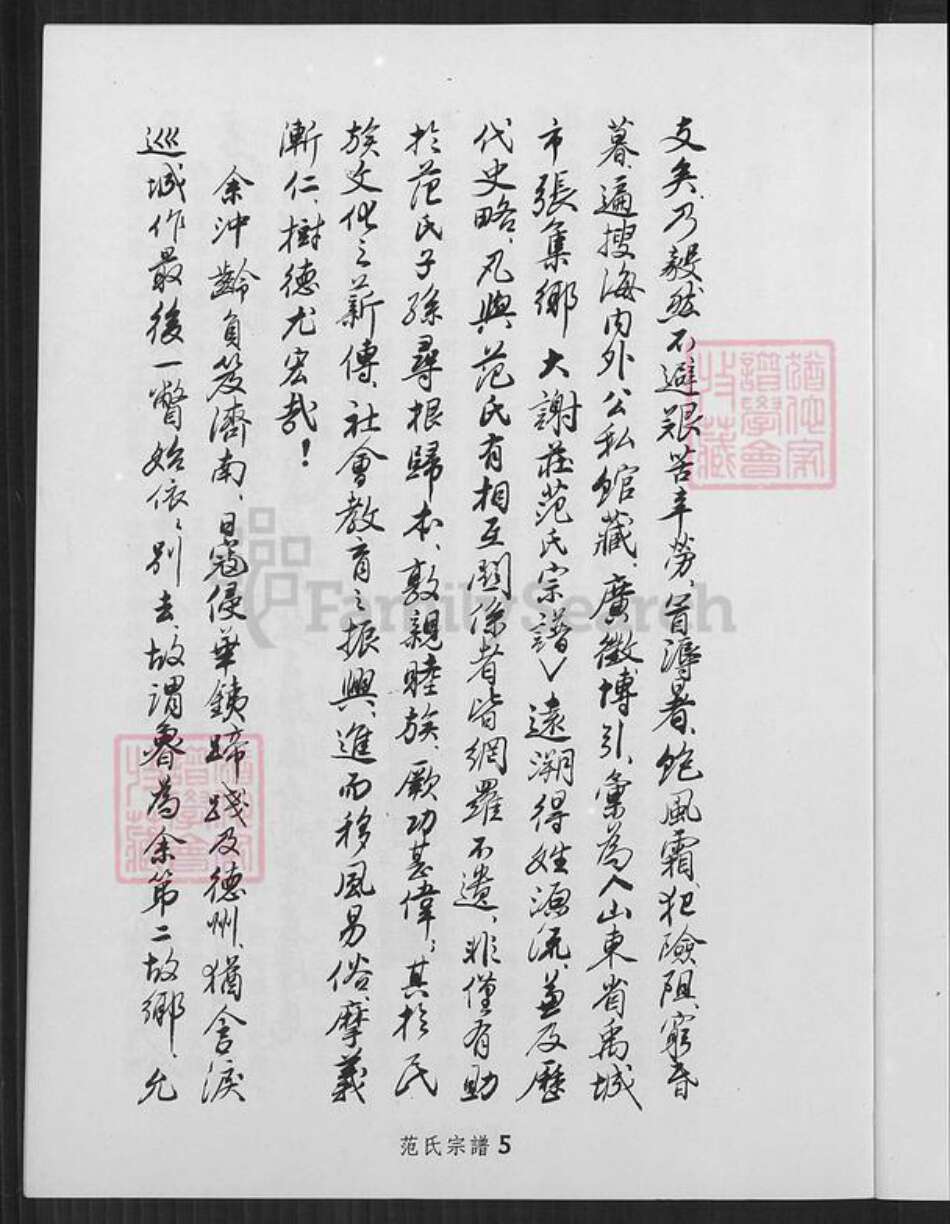 支矣、乃毅然不避艱苦辛勞、冒溽暑、飽風霜、犯險阻、窮昏
暮、遍搜海內外公私館藏、廣徵博引、彙為〈山東省禹城
市張集鄉大謝莊范氏宗譜〉遠溯得姓源流、兼及歷
代史略、凡與范氏有相互關係者皆網羅不遺、非僅有助
於范氏子孫尋根歸本、敦親睦族、厥功甚偉；其於民
族文化之薪傳、社會教育之振興、進而移風易俗、摩義
漸仁、樹德尤宏哉！
余沖齡負笈濟南、日寇侵華鐵蹄踐及德州、猶含淚
巡城作最後一瞥始依依別去、故謂魯為余第二故鄉、允
范氏宗譜 5
FamilySearch